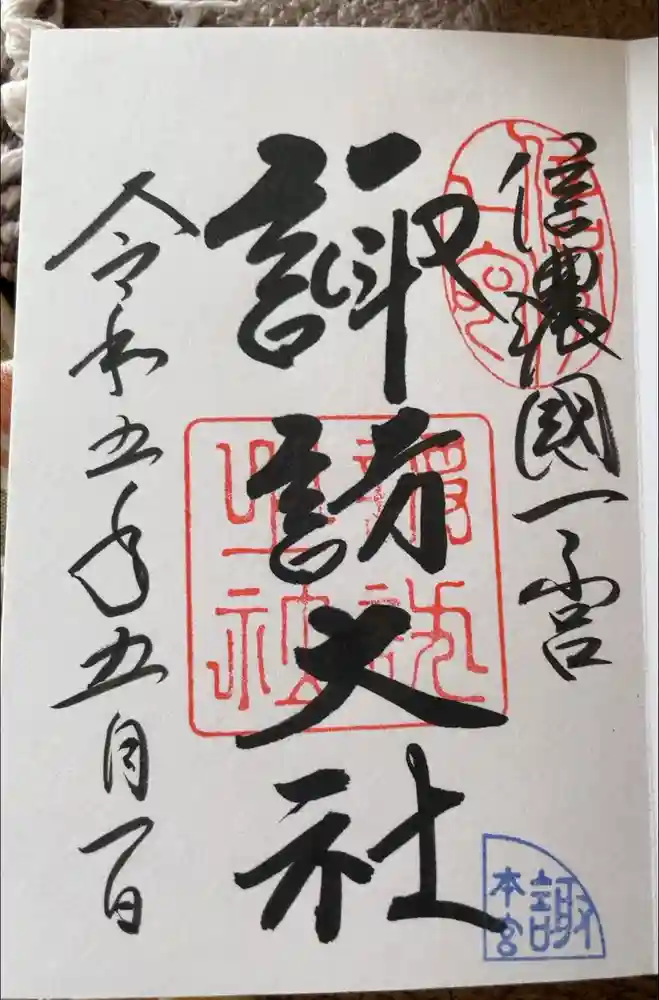 信濃國一之宮
諏訪大社
令和五年五月一日
諏
本宮